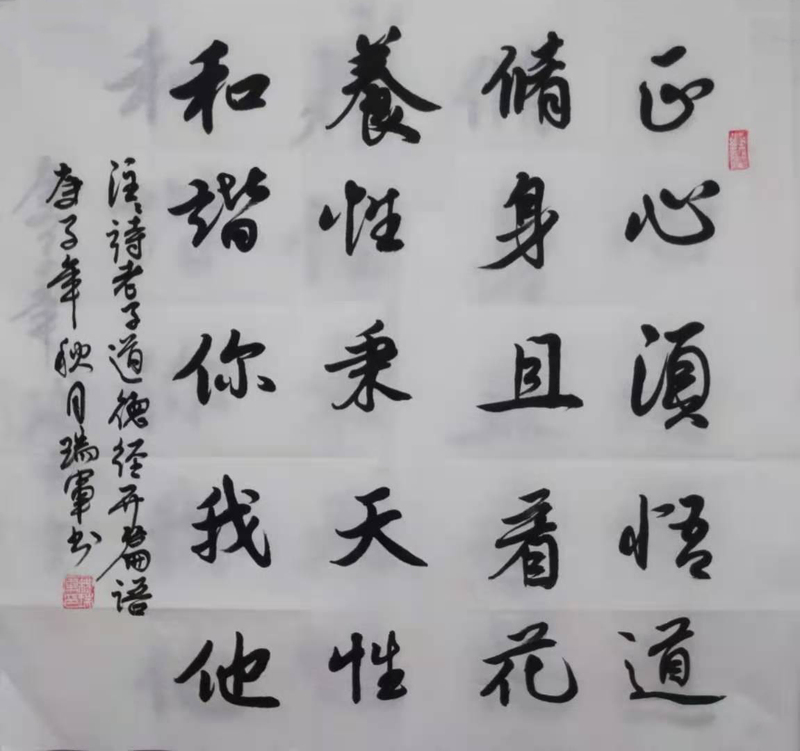 正心須悟道
脩身且看花
養性秉天性
和諧你我他
注:詩老子道德经开篇语
庚子年秋月瑞軍书